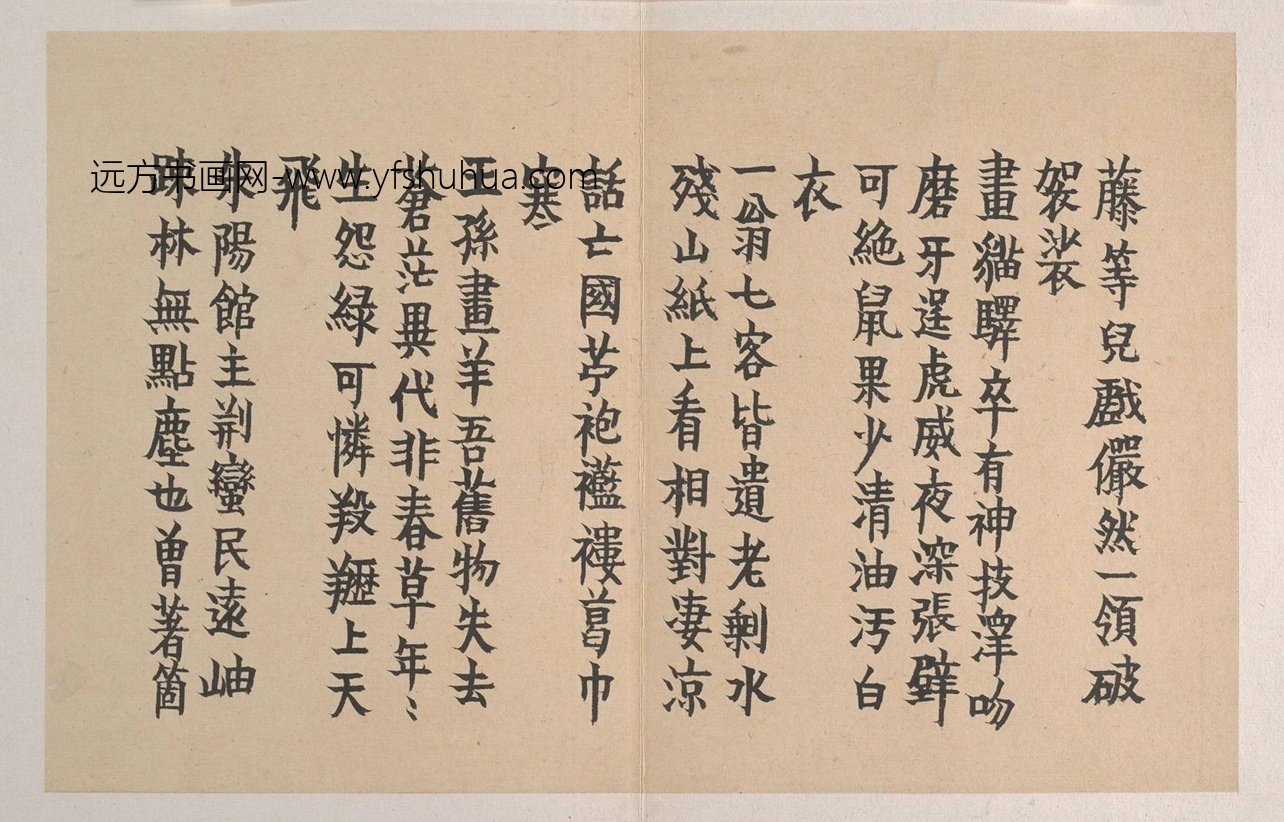 藤等兒戲儼然一領破
袈裟
畫貓驛卒有神技澤吻
磨牙逞虎威夜深張壁
可絕鼠果少清油汚白
衣
一翁七客皆遺老剩水
殘山紙上看相對淒涼
話亡國苧袍襤褸葛巾
寒
王孫畫羊吾舊物失去
蒼茫異代非春草年〻
生怨綠可憐羖䍽上天
飛
朱陽館主荆蠻民遠岫
疎林無點塵也曾著箇
远方书画网-www.yfshuhua.com